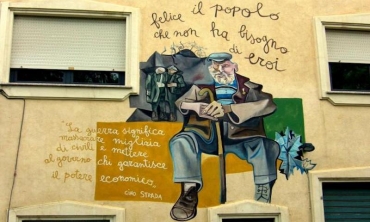 felice il popolo
che non ha bisogno
di eroi
"La guerra significa
massacrare migliaia
di civili e mettere
al governo chi garantisce
il potere economico"
Gino STRADA